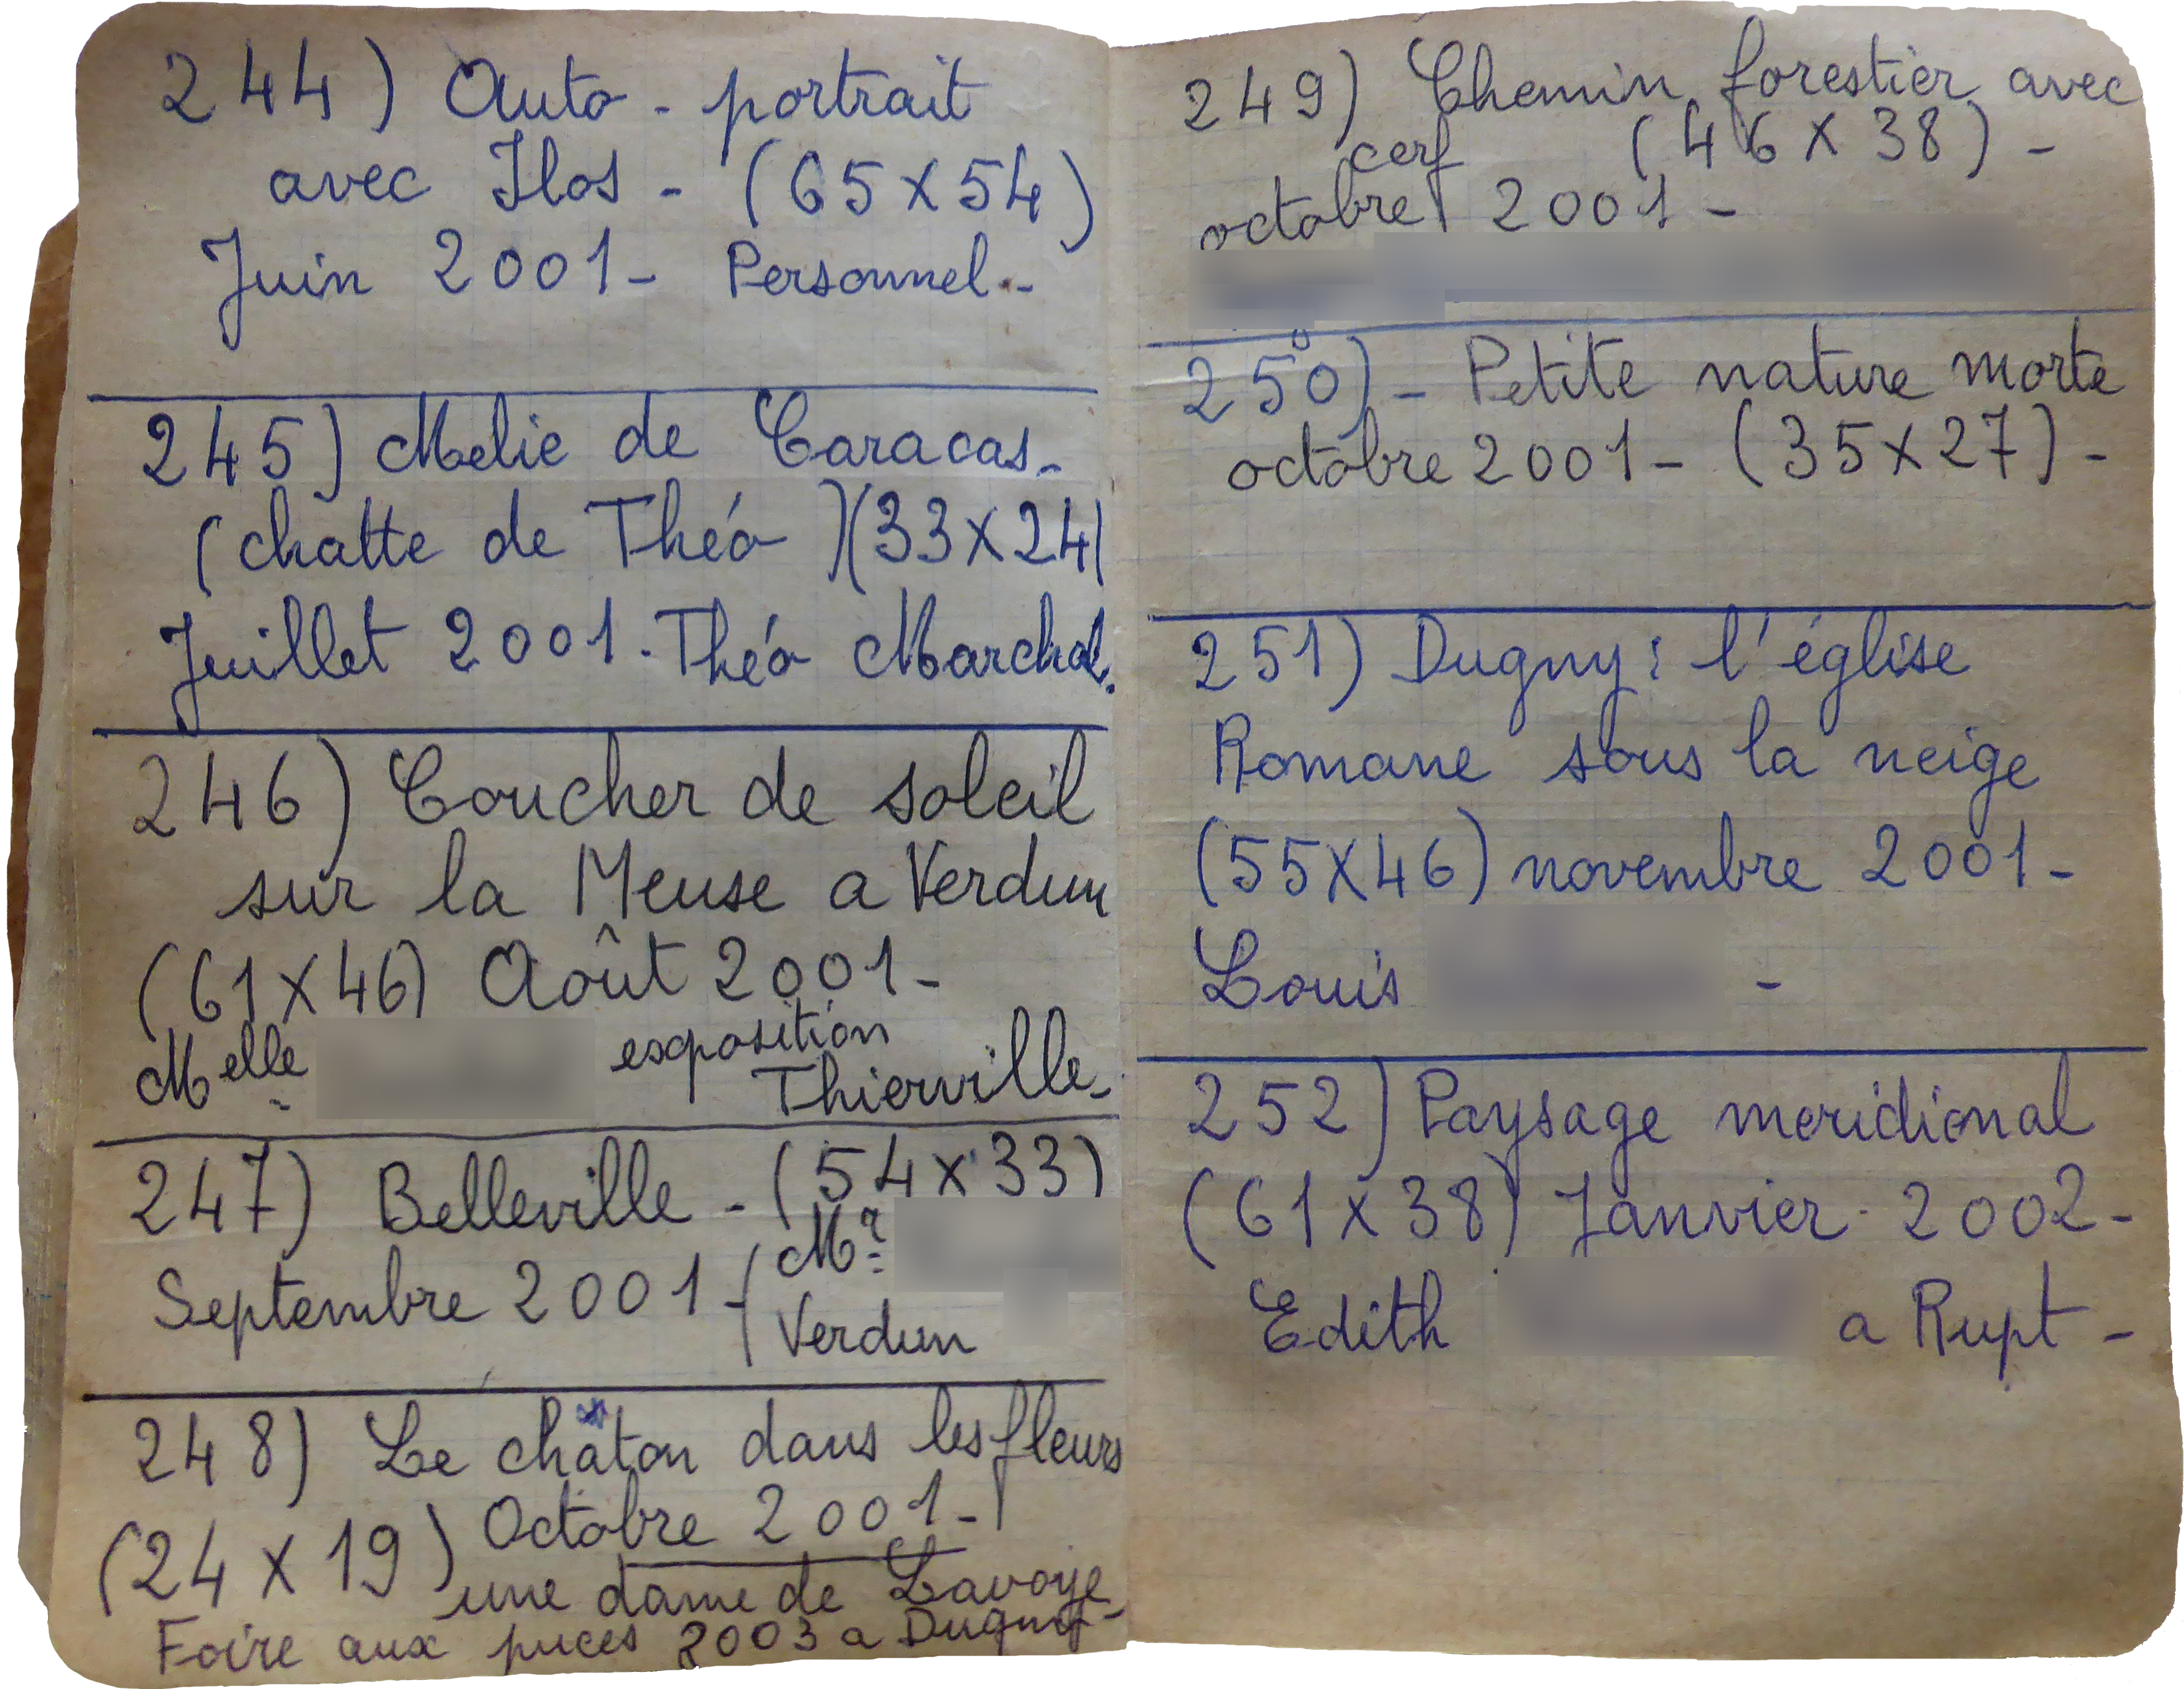 244) Auto - portrait
avec Ilos - (65x54)
Juin 2001 - Personnel.-
245) Melie de Caracas -
(chatte de Théo) (33x24)
Juillet 2001 - Théo Marchal.
246) Coucher de soleil
sur la Meuse a Verdun
(61x46) Août 2001 -
Melle exposition
Thierville -
247) Belleville - (54x33)
Septembre 2001 - ( Mr
Verdun
248) Le châton dans les fleurs
(24x19) Octobre 2001 -
une dame de Lavoye -
Foire aux puces 2003 a Dugny -
249) Chemin forestier avec
cerf (46x38) -
octobre 2001 -
250) - Petite nature morte
octobre 2001 - (35x27) -
251) Dugny : l'église
Romane sous la neige
(55x46) novembre 2001 -
Louis -
252) Paysage meridional
(61x38) Janvier - 2002 -
Edith a Rupt -